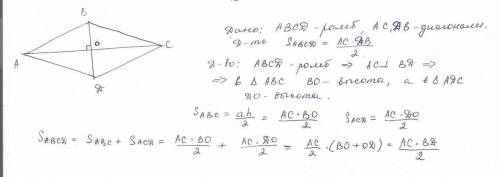 B
O
A
C
Д
Дано: ABCД - ромб, AC, ДB - диагонали.
Д-ть S_ABCД = AC · ДB / 2
Д-во: ABCД - ромб ⇒ AC ⊥ BД ⇒
⇒ в Δ ABC BO - высота, а в Δ AДC
ДO - высота.
S_ABC = ah / 2 = AC · BO / 2 S_ACД = AC · ДO / 2
S_ABCД = S_ABC + S_ACД = AC · BO / 2 + AC · ДO / 2 = AC / 2 · (BO + OД) = AC · BД / 2